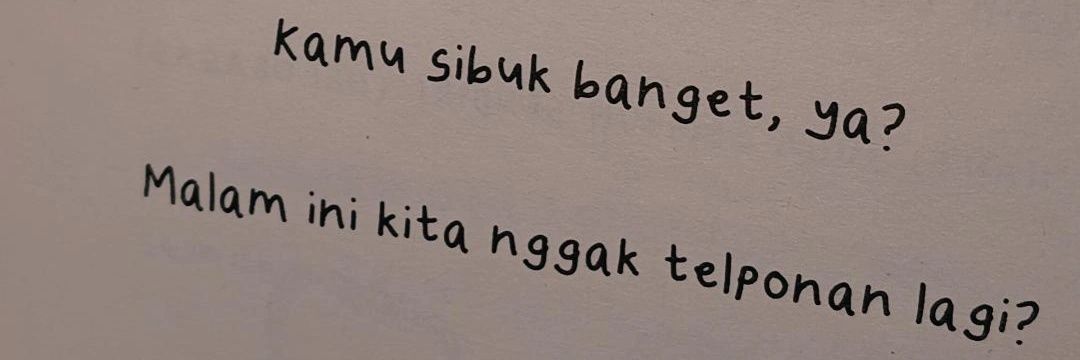 kamu sibuk banget, ya?
Malam ini kita nggak telponan lagi?